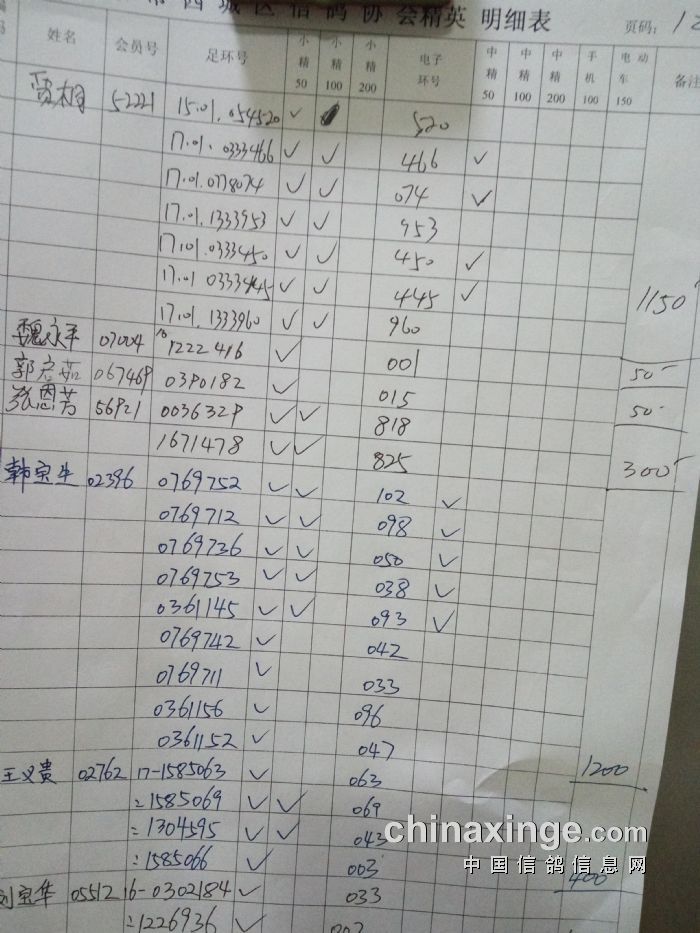 市西城区信鸽协会精英 明细表 页码：
姓名 会员号 足环号 小精50 小精100 小精200 电子环号 中精50 中精100 中精200 手机100 电动车150 备注
贾相 52221 15.01.054520 ✓ 520
17.01.0333466 ✓ ✓ 466 ✓
17.01.0778074 ✓ ✓ 074 ✓
17.01.1333953 ✓ ✓ 953
17.01.0333450 ✓ ✓ 450 ✓
17.01 0333445 ✓ ✓ 445 ✓ 1150
17.01.1333960 ✓ ✓ 960
魏永平 07004 16 1222416 ✓ 001 50
067469 0390182 ✓ 015 50
张恩芳 56921 0036329 ✓ ✓ 818
1671478 ✓ ✓ 825 300
韩宝生 02396 0769752 ✓ ✓ 102 ✓
0769712 ✓ ✓ 098 ✓
0769736 ✓ ✓ 050 ✓
0769753 ✓ ✓ 038 ✓
0361145 ✓ ✓ 093 ✓
0769742 ✓ 042
0769711 ✓ 033
0361156 ✓ 096
0361152 ✓ 047 1200
王义贵 02762 17-1585063 ✓ 063
=1585069 ✓ ✓ 069
=1304595 ✓ ✓ 043
=1585066 ✓ 003 400
刘宝华 05512 16-0302184 ✓ 033
=1226936 ✓
chinaxinge.com
中国信鸽信息网